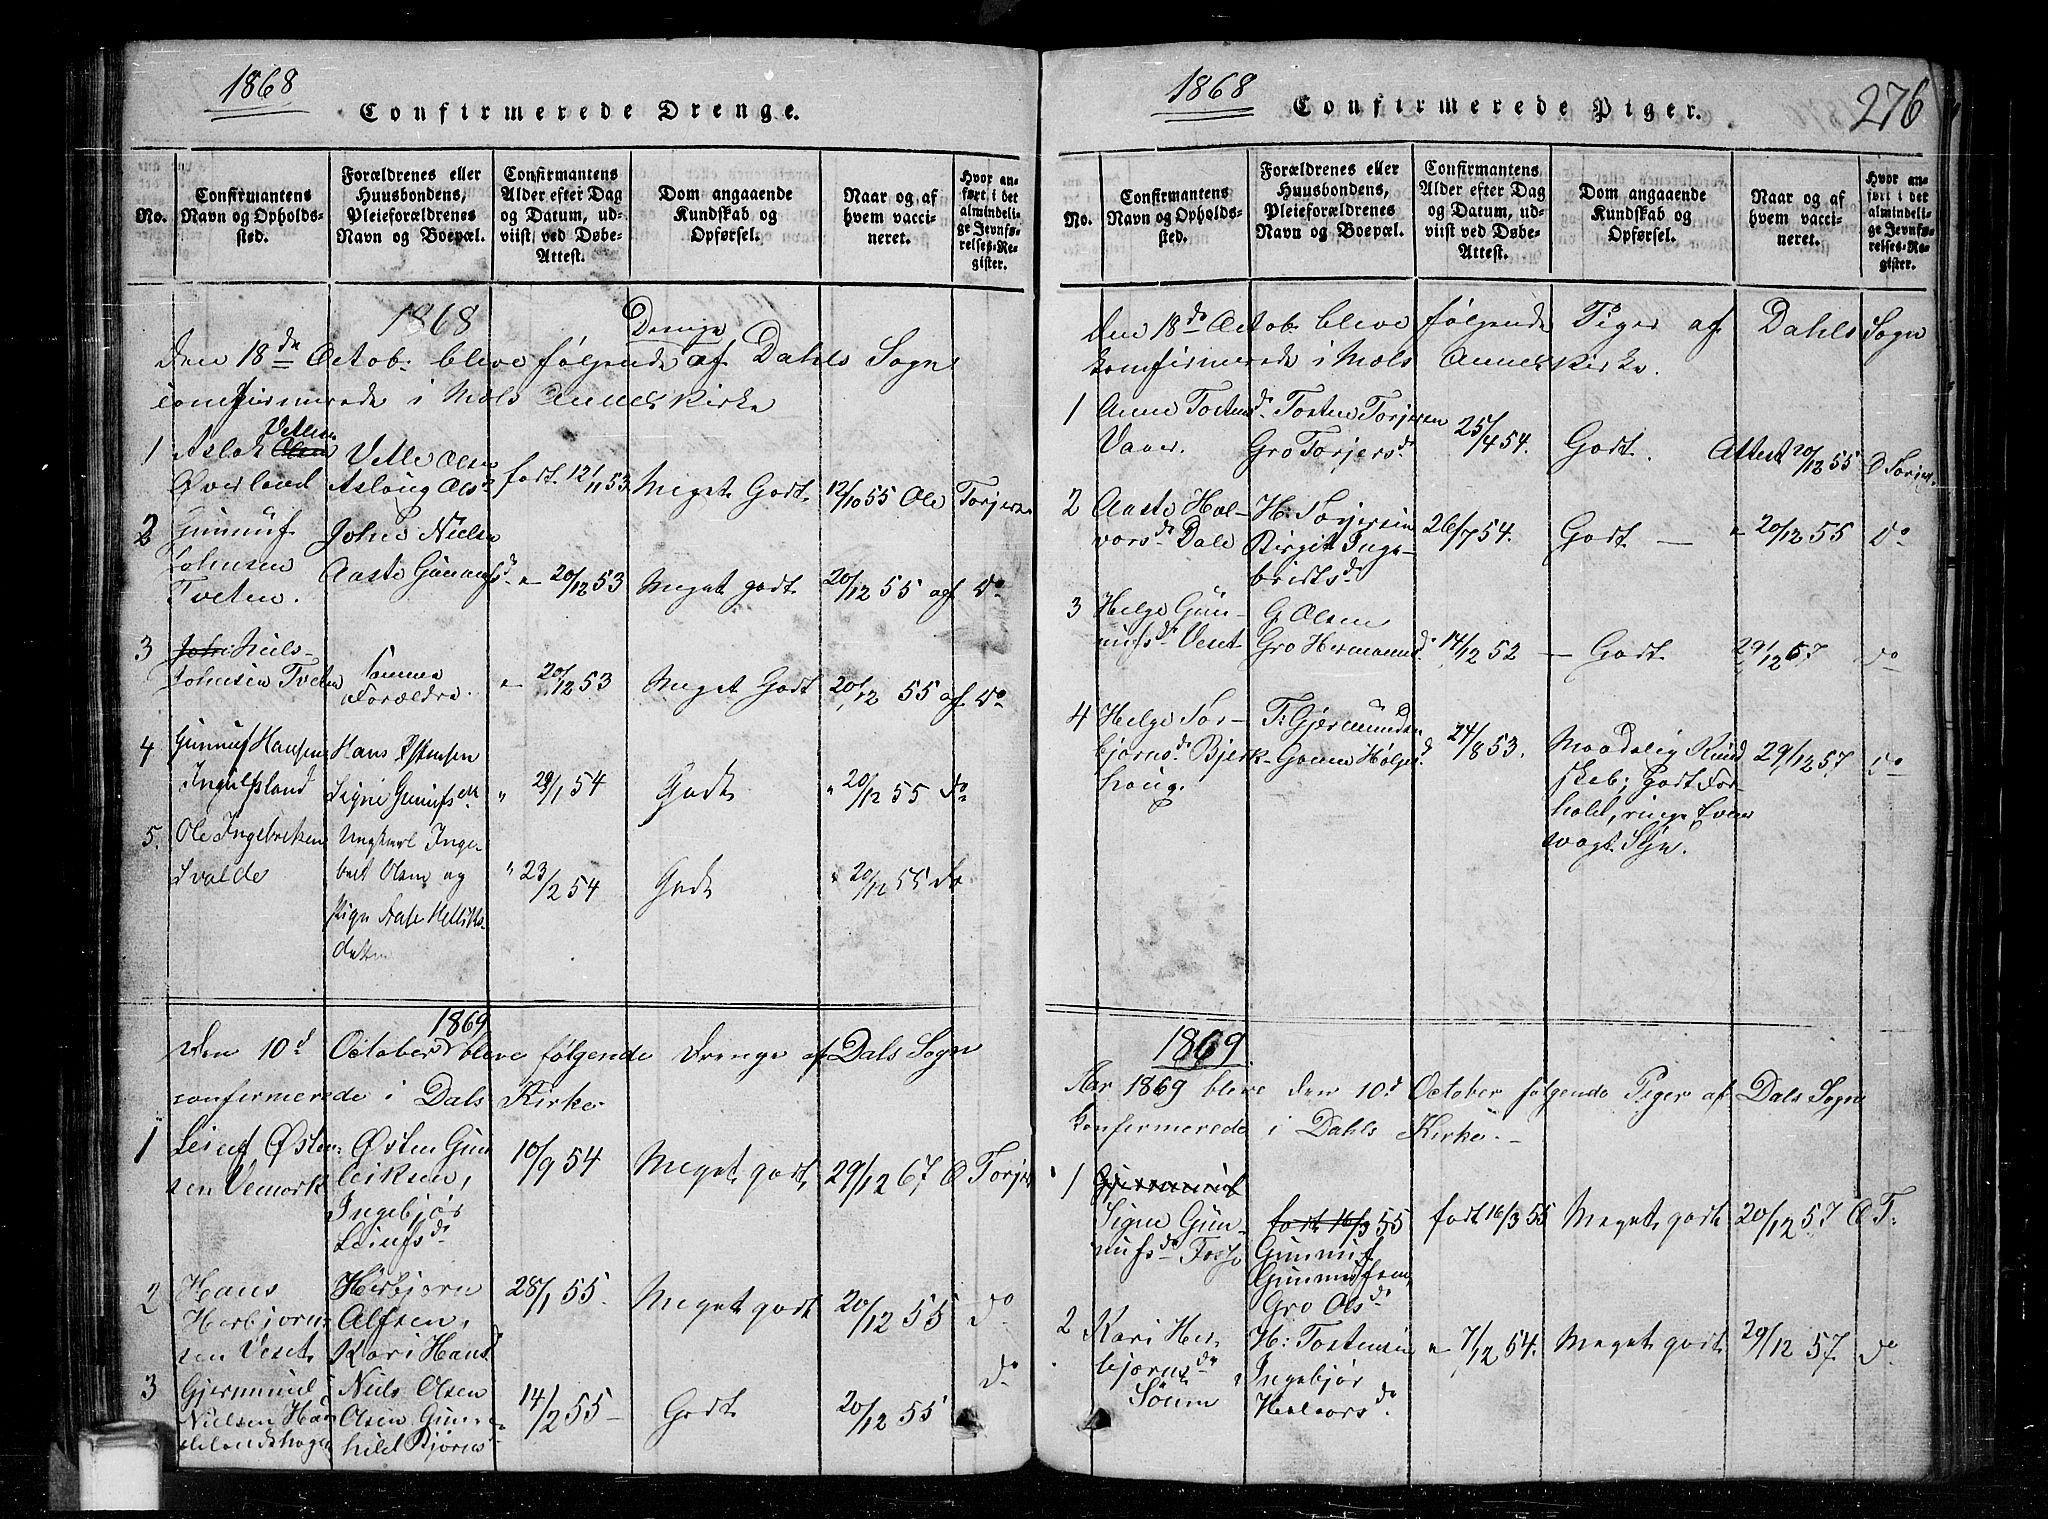 1868
Confirmerede Drenge.
No.
Confirmantens
Navn og Opholds-
sted.
Forældrenes eller
Huusbondens,
Pleieforældrenes
Navn og Boepæl.
Confirmantens
Alder efter Dag
og Datum, ud-
viist ved Døbe-
Attest.
Dom angaaende
Kundskab og
Opførsel.
Naar og af
hvem vacci-
neret.
Hvor an-
ført i det
almindeli-
ge Jevnfø-
relses-Re-
gister.
1868
Drenge
Den 18de Octob. bleve følgende af Dahls Sogn
confirmerede i Mols Annex Kirke
1 Aslak Olsen Vetlesen
Øverland
Vetle Olsen
Aslaug Olsd
født 12/1 53
Meget Godt
12/10 55 Ole Torjersen
2 Gunnuf
Johnsen
Tveten.
John Nielsen
Aaste Gunnufsd.
" 20/12 53
Meget godt
20/12 55 af Do
3 John Niels
Johnsen Tveten
samme
Forældre.
" 20/12 53
Meget Godt
20/12 55 af Do
4 Gunnuf Hansen
Ingulfsland
Hans Østensen
Signe Gunufsd
" 29/1 54
Godt
" 20/12 55 Do
5. Ole Ingebretsen
Svalde
Ungkarl Inge-
bret Olsen og
Pige Aase Helliks-
datter
" 23/2 54
Godt
" 20/12 55 Do
1869
Den 10d October bleve følgende Drenge af Dals Sogn
confermerede i Dals Kirke
1 Leiuf Østen-
sen Vemork
Østen Gun-
leiksen,
Ingebjør
Leiufsd.
10/9 54
Meget godt
29/12 67, O Torjers
2 Hans
Herbjørn-
sen Veset
Herbjørn
Alfsen,
Kari Hansd
28/1 55.
Meget godt
20/12 55
Do
3 Gjermund
Nielsen
Niels Olsen
Olsen Gun-
hild Bjørns
14/2 55
Godt
20/12 55
Do
1868
Confirmerede Piger.
276
No.
Confirmantens
Navn og Opholds-
sted.
Forældrenes eller
Huusbondens,
Pleieforældrenes
Navn og Boepæl.
Confirmantens
Alder efter Dag
og Datum, ud-
viist ved Døbe-
Attest.
Dom angaaende
Kundskab og
Opførsel.
Naar og af
hvem vacci-
neret.
Hvor an-
ført i det
almindeli-
ge Jevnfø-
relses-Re-
gister.
Den 18de Octob. bleve følgende Piger af Dahls Sogn
konfirmerede i Mols Annex Kirke.
1 Anne Tostensd.
Vaaer.
Tosten Torjersen
Gro Torjersd
25/4 54.
Godt.
Attest 20/12 55 O Torjers.
2 Aaste Hal-
vorsd. Dale
H: Torjersen
Birgit Inge-
bridtsd
26/7 54.
Godt
" 20/12 55 Do
3 Helge Gun-
nufsd. Veset
G. Olsen
Gro Hermannsd.
14/12 52
Godt
29/12 57 Do
4 Helge Tor-
bjørnsd. Bjerk-
haug.
T: Gjermundsen
24/8 53.
Maadelig Kund-
skab; Godt For-
hold, ringe Evne
svagt Syn.
29/12 57. Do
1869
Aar 1869 bleve den 10d October følgende Piger af Dals Sogn
konfermerede i Dahls Kirke.
1 Gjermund
Signe Gun-
nufsd. Fosso
født 16/3 55
Gunnuf
Gunnufsen,
Gro Olsd
født 16/3 55
Meget godt
20/12 57 O T:
2 Kari Her-
bjørnsd
Søum
H: Tostensen
Ingebjør
Halvorsd.
" 7/12 54.
Meget godt
29/12 57. Do